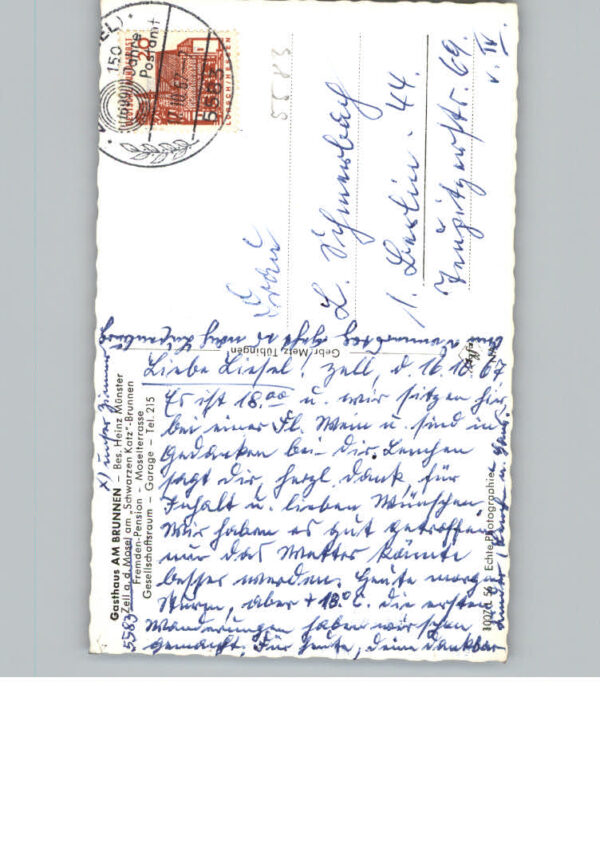 Liebe Liesel! Zell, d. 16.10.67.
Es ist 18.00 u. wir sitzen hier
bei einer Fl. Wein u. sind in
Gedanken bei dir. Lenchen
sagt dir, herzl. Dank, für
Inhalt u. lieben Wünschen.
Wir haben es gut getroffen
nur das Wetter könnte
besser werden. Heute morgen
Sturm, aber + 18°C. die ersten
Wanderungen haben wir schon
gemacht. Für heute, deine dankbar
x) unser Zimmer
Gasthaus AM BRUNNEN – Bes. Heinz Münster
5583 Zell a. d. Mosel am „Schwarzen Katz"-Brunnen
Fremden-Pension – Moselterrasse
Gesellschaftsraum – Garage – Tel. 215
Gebr. Metz, Tübingen
Echte Photographie
Frau
L.
1. Berlin. 44.
69.
v. IV.
5583
150 Jahre
Postamt
5583
20
LORSCH/HESSEN